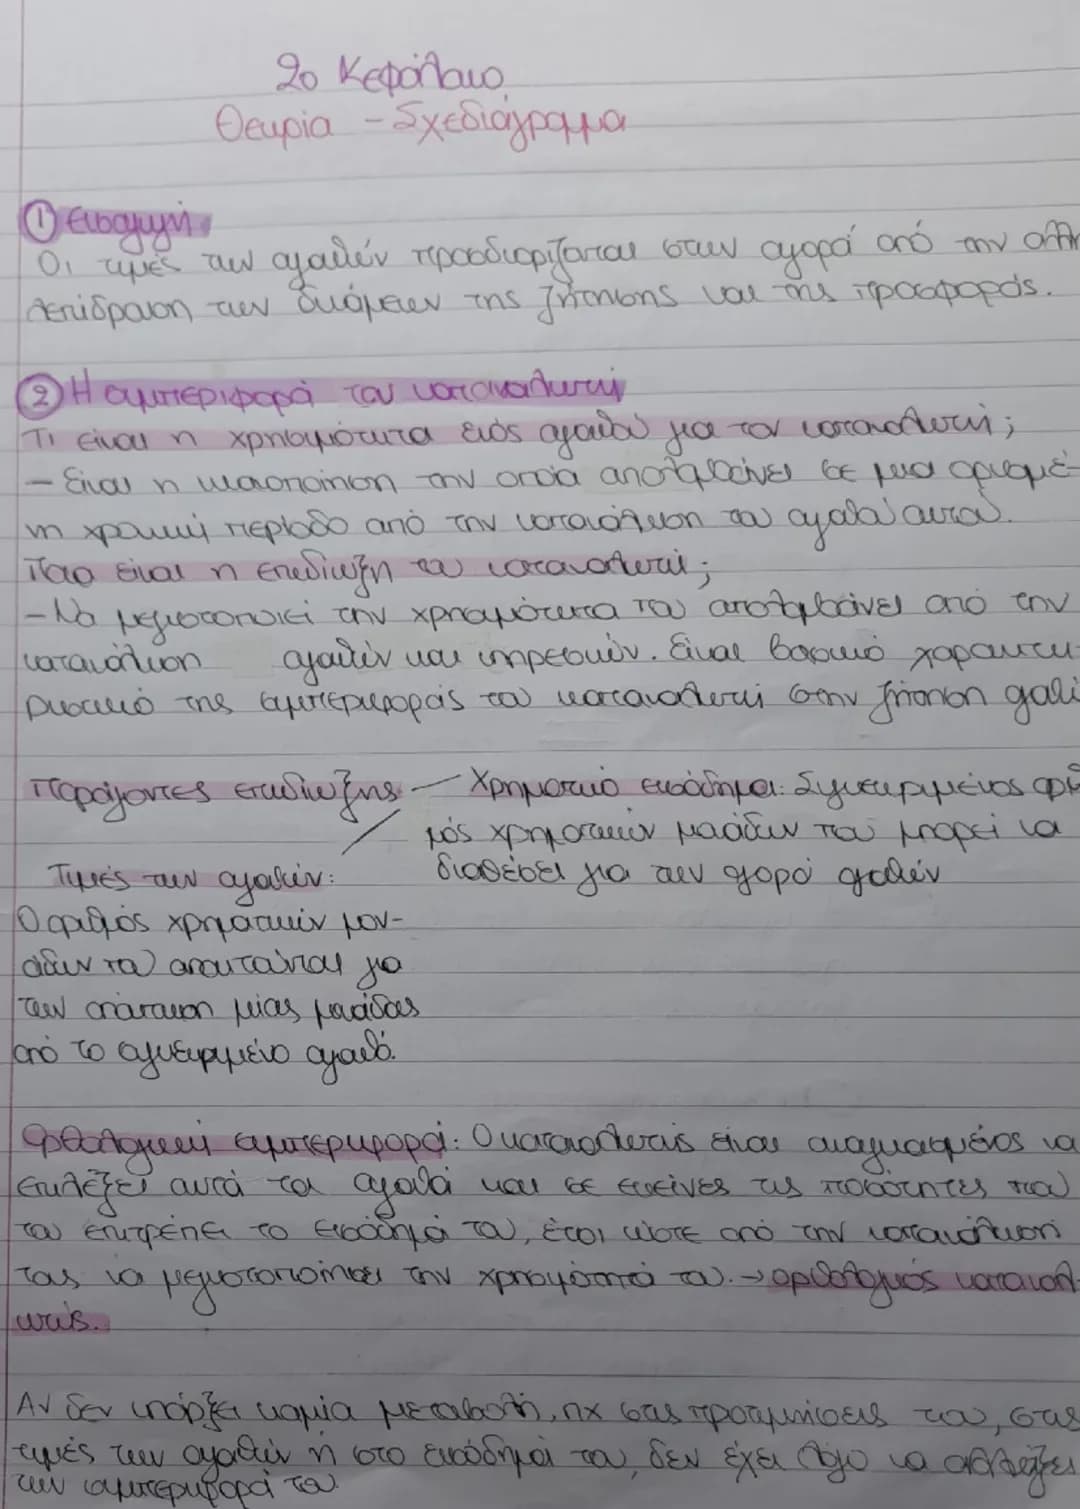 2ο Κεφάλαιο
Θεωρία - Σχεδιάγραμμα
① Εισαγωγή
Οι τιμές των αγαθών προσδιορίζονται στην αγορά από την αλλη
λεπίδραση των δυνάμεων της ζήτησης και της προσφοράς.
② Η συμπεριφορά του καταναλωτή
Τι είναι η χρησιμότητα ενός αγαθού για τον καταναλωτή;
- Είναι η ικανοποίηση την οποία απολαμβάνει σε μια ορισμέ-
νη χρονική περίοδο από την κατανάλωση του αγαθού αυτού.
Ποια είναι η επιδίωξη του καταναλωτή;
- Να μεγιστοποιεί την χρησιμότητα που απολαμβάνει από την
κατανάλωση αγαθών και υπηρεσιών. Είναι βασικό χαρακτη-
ριστικό της συμπεριφοράς του καταναλωτή στην ζήτηση
Παράγοντες επιδίωξης - Χρηματικό εισόδημα: Συγκεκριμένος αριθ
μός χρηματικών μονάδων που μπορεί να
διαθέσει για την αγορά αγαθών
Τιμές των αγαθών:
Ο αριθμός χρηματικών μον-
άδων που απαιτούνται για
την απόκτηση μίας μονάδας
από το συγκεκριμένο αγαθό.
Ορθολογική συμπεριφορά: Ο καταναλωτής είναι αναγκασμένος να
επιλέξει αυτά τα αγαθά και σε εκείνες τις ποσότητες που
του επιτρέπει το εισόδημά του, έτσι ώστε από την κατανάλωσή
τους να μεγιστοποιήσει την χρησιμότητά του. → ορθολογικός καταναλ-
ωτής.
Αν δεν υπάρξει καμία μεταβολή, πχ στις προτιμήσεις του, στις
τιμές των αγαθών ή στο εισόδημά του, δεν έχει λόγο να αλλάξει
την συμπεριφορά του